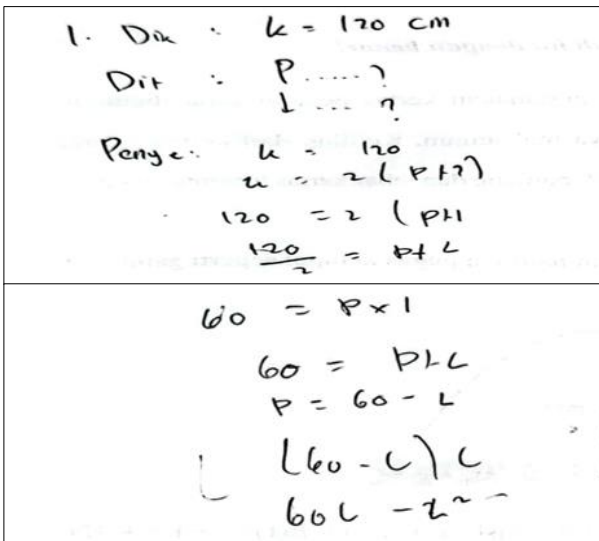 1. Dik : k = 120 cm
Dit : P ..... ?
L ... ?
Penye : k = 120
k = 2 ( P + ?)
120 = 2 ( p+l
120/2 = p+ L
60 = P x l
60 = p+L
P = 60 - L
L (60 - L) L
60L - L²